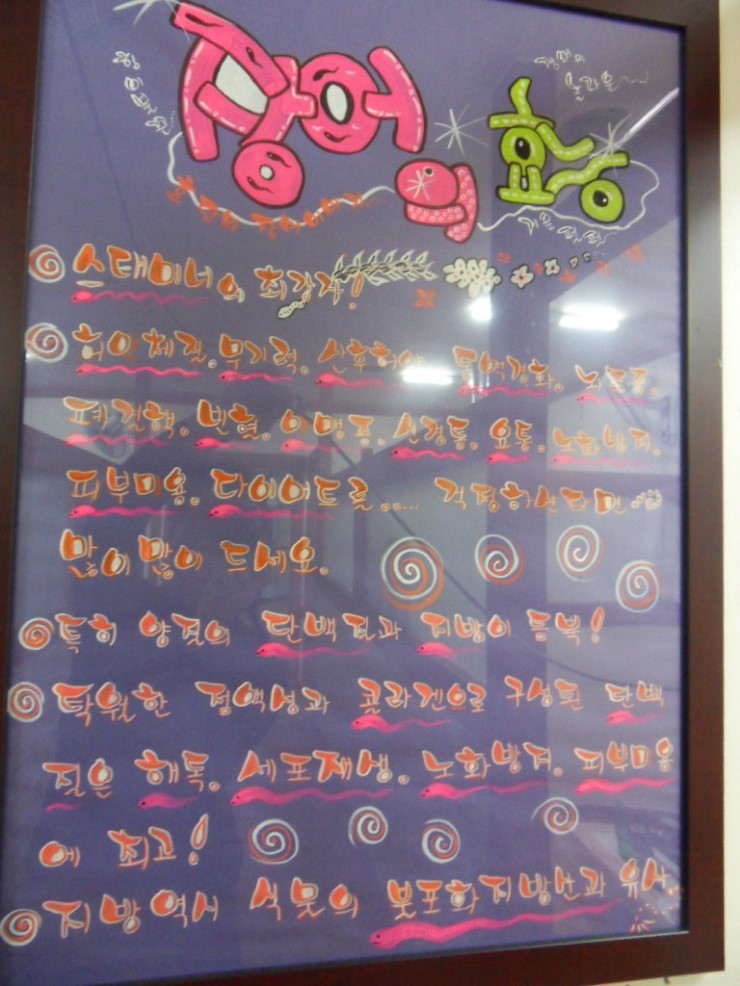 장어
효능
스태미너의 최강자!
허약체질. 무기력. 산후허약. 동맥경화. 뇌졸중.
폐결핵. 빈혈. 이명증. 신경통. 요통. 노화방지.
피부미용. 다이어트로..... 걱정하신다면~
많이 많이 드세요.
특히 양질의 단백질과 지방이 듬뿍!
탁월한 점액성과 콜라겐으로 구성된 단백
질은 해독. 세포재생. 노화방지. 피부미용
에 최고!
지방역시 식물의 불포화지방산과 유사.